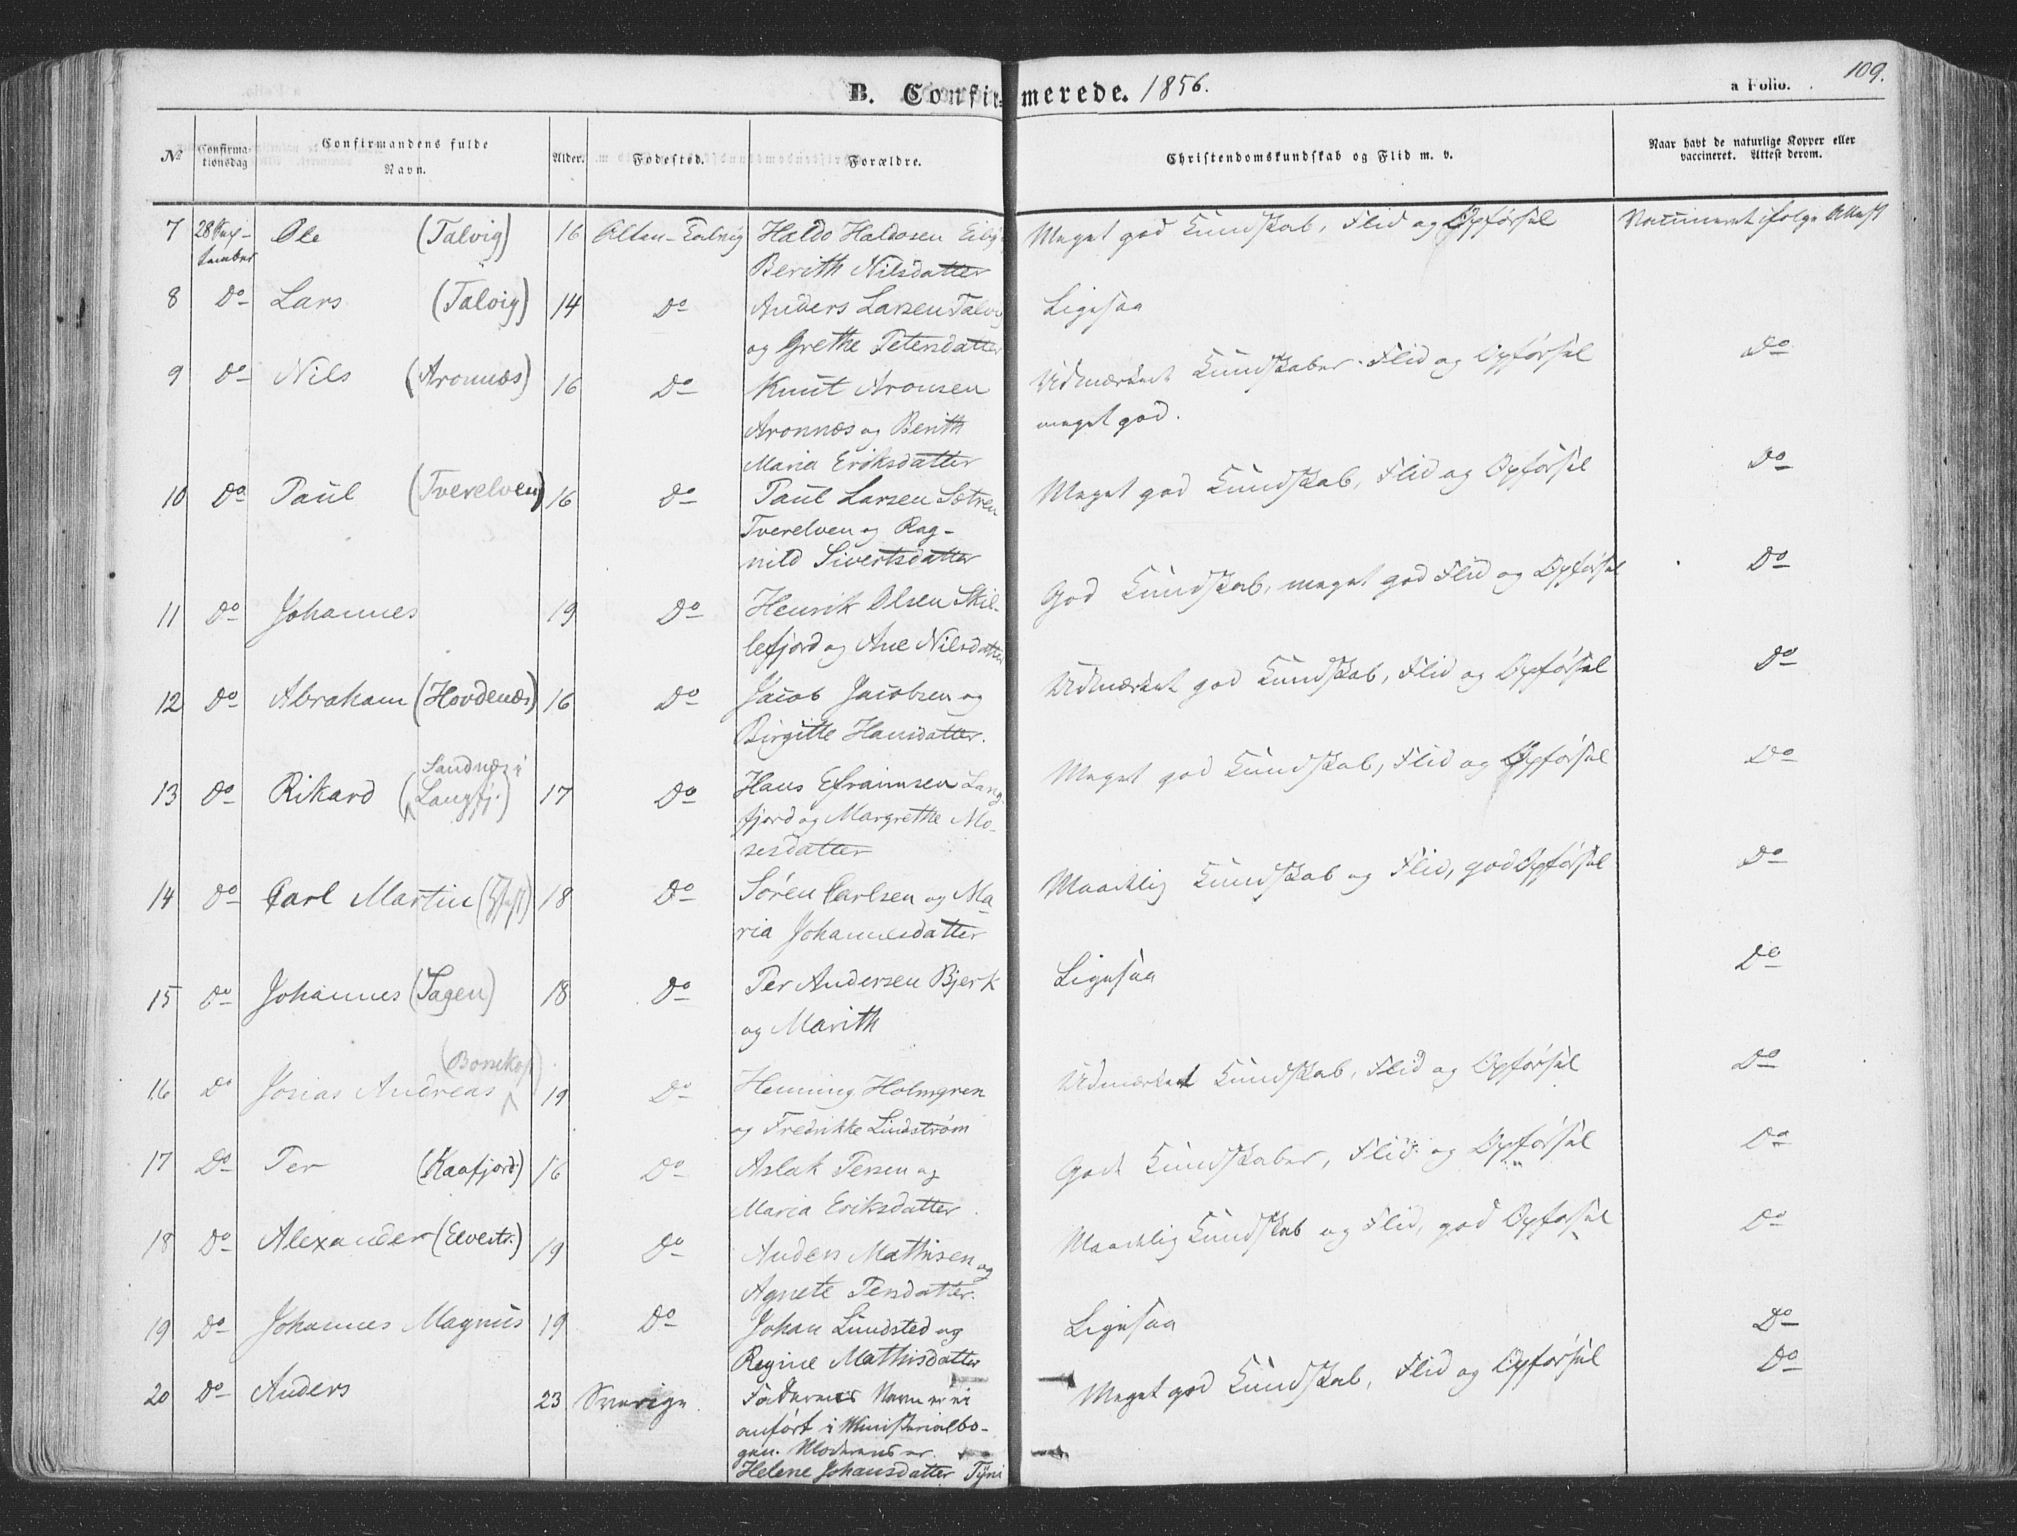 B. Confirmerede. 1856.
a Folio. 109.
No Confirmationsdag Confirmandens fulde Navn. Alder. Fødested. Forældre. Christendomskundskab og Flid m. v. Naar havt de naturlige Kopper eller vaccineret. Attest derom.
7 28 Sep- Ole (Talvig) 16 Alten-Talvig Haldo Haldosen Meget god Kundskab, Flid og Opførsel Vaccineret ifølge Attest
tember Berith Nilsdatter
8 Do Lars (Talvig) 14 Do Anders Larsen Talvig Ligesaa
og Grethe Petersdatter
9 Do Nils (Aronnæs) 16 Do Knut Aronsen Udmærket Kundskaber. Flid og Opførsel Do
Aronnæs og Berith meget god.
Maria Eriksdatter
10 Do Paul (Tverelven) 16 Do Paul Larsen Sætren Meget god Kundskab, Flid og Opførsel Do
Tverelven og Rag-
nild Sivertsdatter
11 Do Johannes 19 Do Henrik Olsen Skil- God Kundskab, meget god Flid og Opførsel Do
lefjord og Ane Nilsdatter
12 Do Abraham (Hovdenæs) 16 Do Jacob Jacobsen og Udmærket god Kundskab, Flid og Opførsel Do
Birgitte Hansdatter.
Sandnæs i
13 Do Rikard (Langfj.) 17 Do Hans Efraimsen Lang- Meget god Kundskab, Flid og Opførsel Do
fjord og Margrethe Mo-
sesdatter
14 Do Carl Martin 18 Do Søren Carlsen og Ma- Maadelig Kundskab og Flid, god Opførsel Do
ria Johannesdatter
15 Do Johannes (Sagen) 18 Do Per Andersen Bjerk Ligesaa Do
og Marith
(Bossekop)
16 Do Josias Andreas 19 Do Henning Holmgren Udmærket Kundskab, Flid og Opførsel Do
og Fredrikke Lindstrøm
17 Do Per (Kaafjord.) 16 Do Aslak Persen og Gode Kundskaber, Flid og Opførsel Do
Maria Eriksdatter.
18 Do Alexander (Elvestr.) 19 Do Anders Mathisen og Maadelig Kundskab og Flid, god Opførsel Do
Agnete Persdatter.
19 Do Johannes Magnus 19 Do Johan Lundsted og Ligesaa Do
Regine Mathisdatter
20 Do Anders 23 Sverige. Faderens Navn er ei Meget god Kundskab, Flid og Opførsel Do
anført i Ministerialbo-
gen. Moderens er
Helene Johansdatter